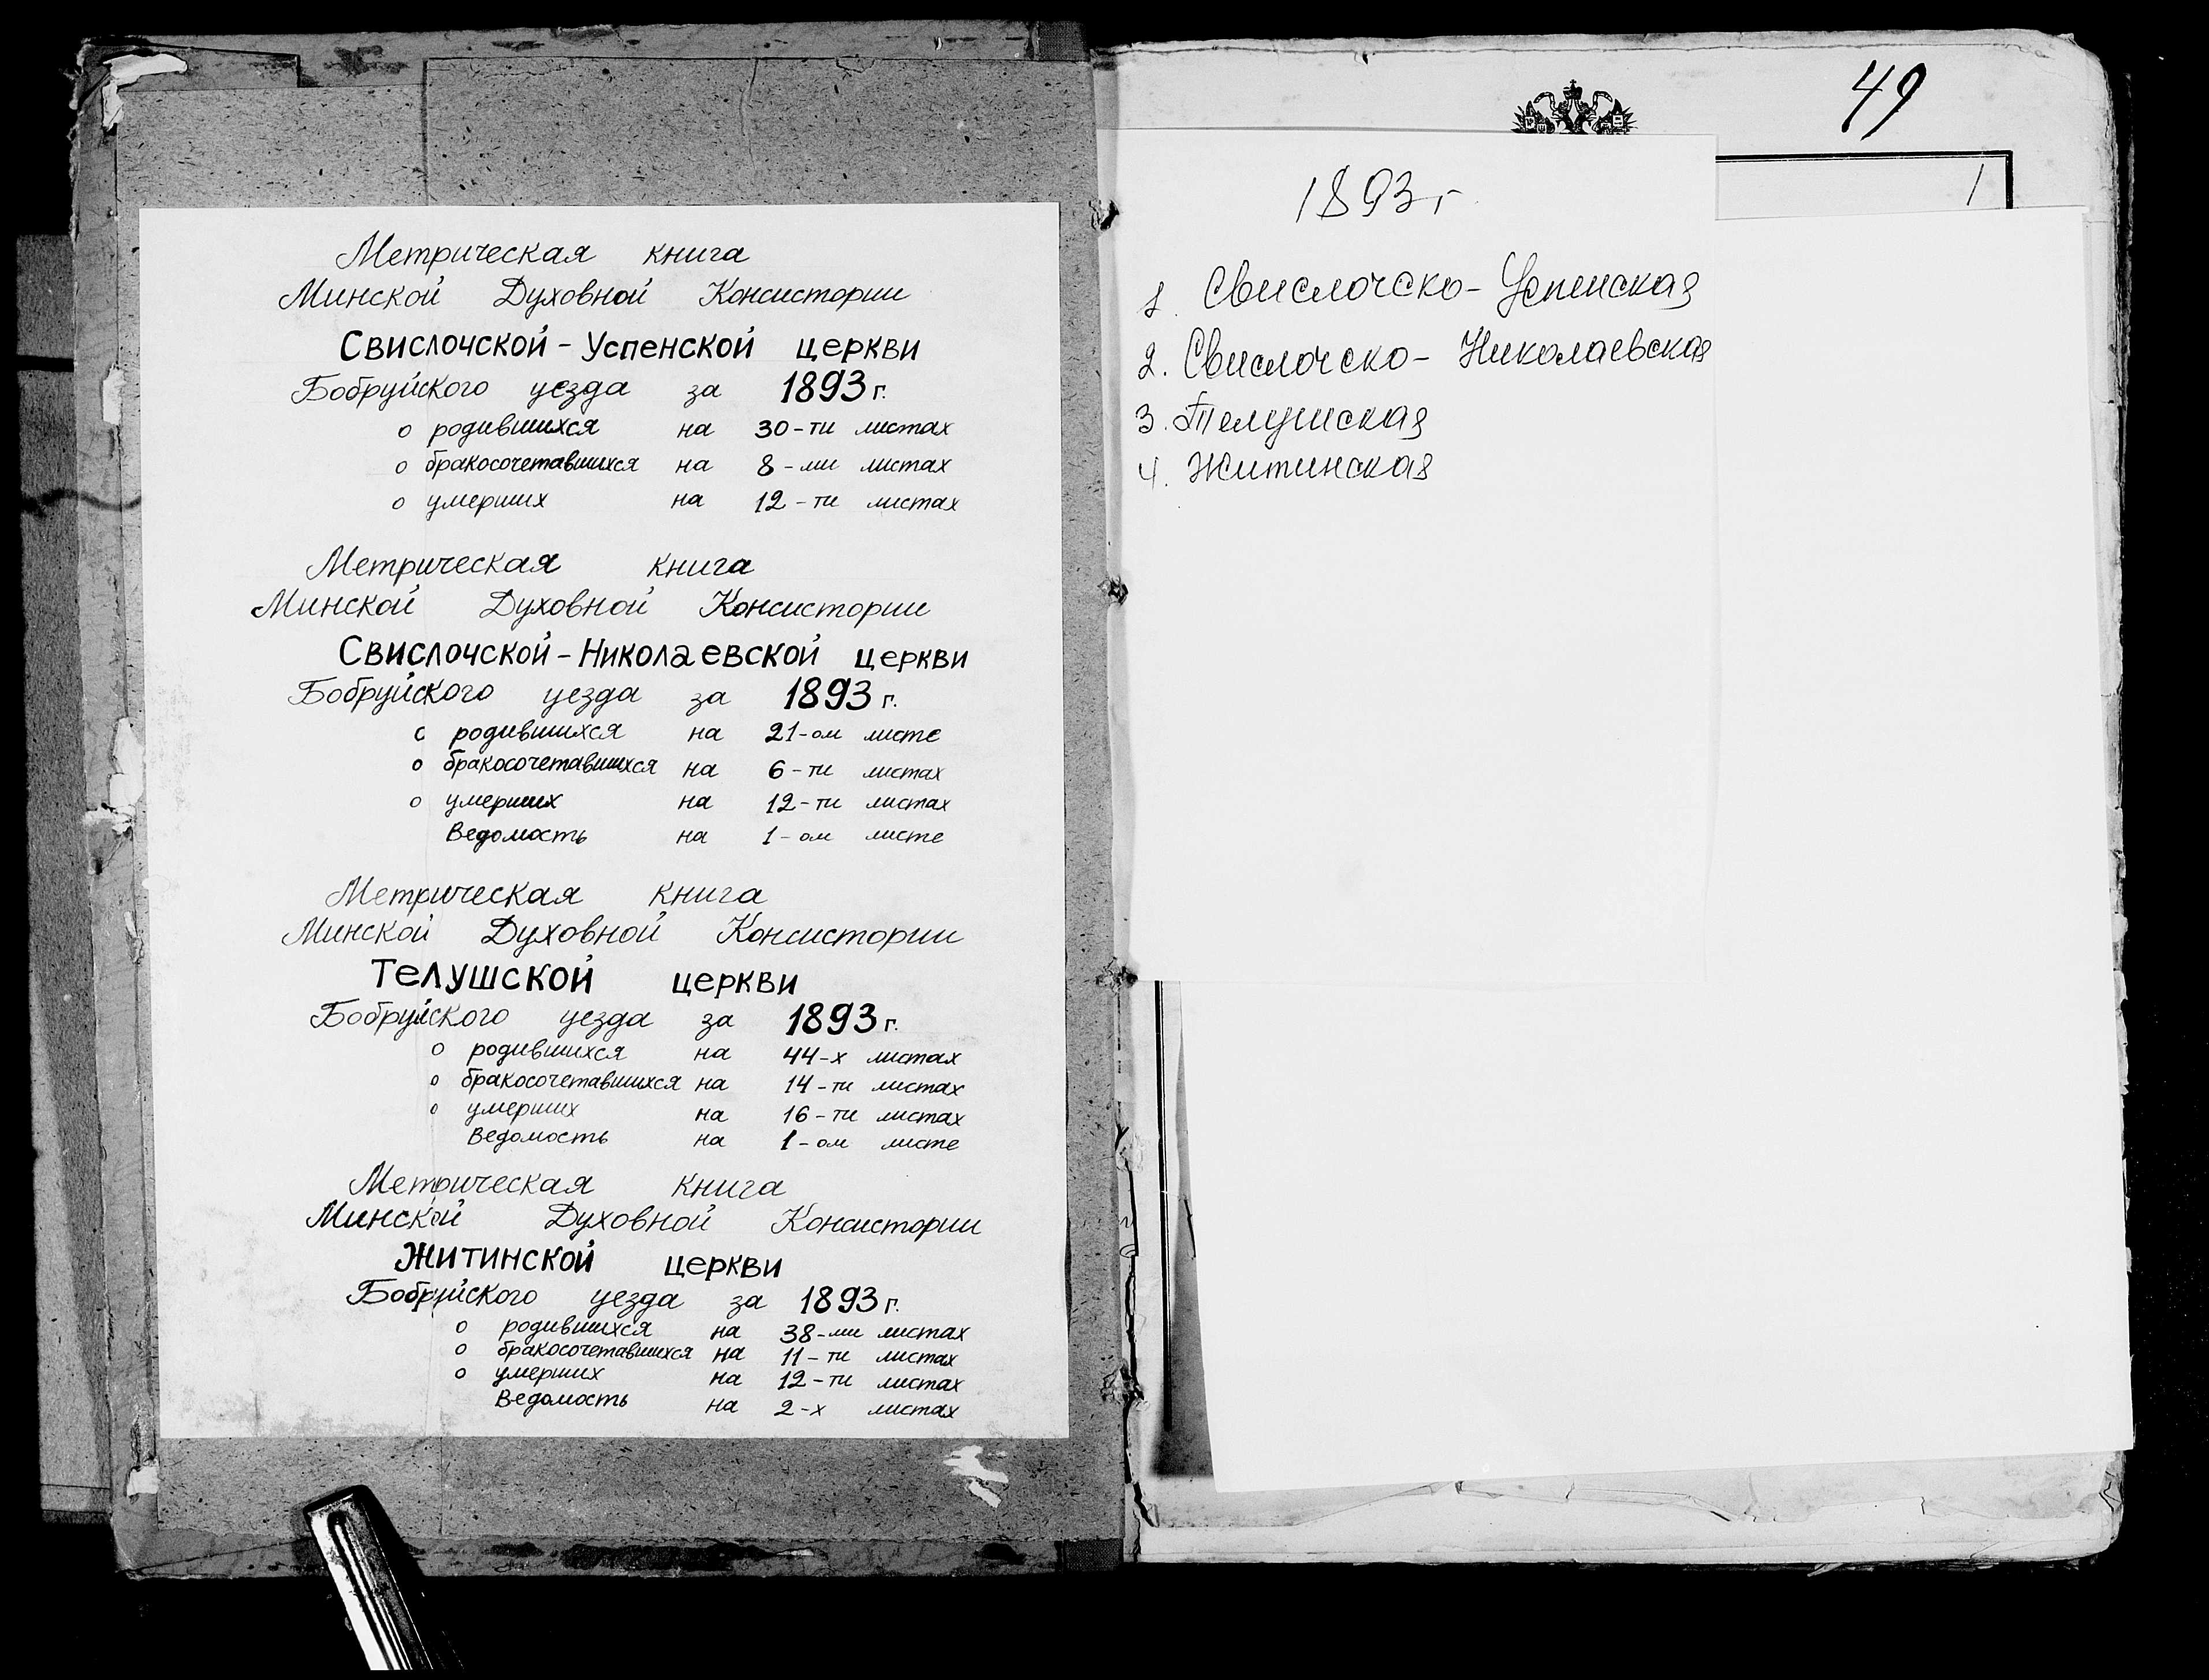 Метрическая книга
Минской Духовной Консистории
Свислочской - Успенской церкви
Бобруйского уезда за 1893 г.
о родившихся на 30-ти листах
о бракосочетавшихся на 8-ми листах
о умерших на 12-ти листах
Метрическая книга
Минской Духовной Консистории
Свислочской - Николаевской церкви
Бобруйского уезда за 1893 г.
о родившихся на 21-ом листе
о бракосочетавшихся на 6-ти листах
о умерших на 12-ти листах
Ведомость на 1-ом листе
Метрическая книга
Минской Духовной Консистории
Телушской церкви
Бобруйского уезда за 1893 г.
о родившихся на 44-х листах
о бракосочетавшихся на 14-ти листах
о умерших на 16-ти листах
Ведомость на 1-ом листе
Метрическая книга
Минской Духовной Консистории
Житинской церкви
Бобруйского уезда за 1893 г.
о родившихся на 38-ми листах
о бракосочетавшихся на 11-ти листах
о умерших на 12-ти листах
Ведомость на 2-х листах
49
1
1893 г
1. Свислочско - Успенская
2. Свислочско - Николаевская
3. Телушская
4. Житинская